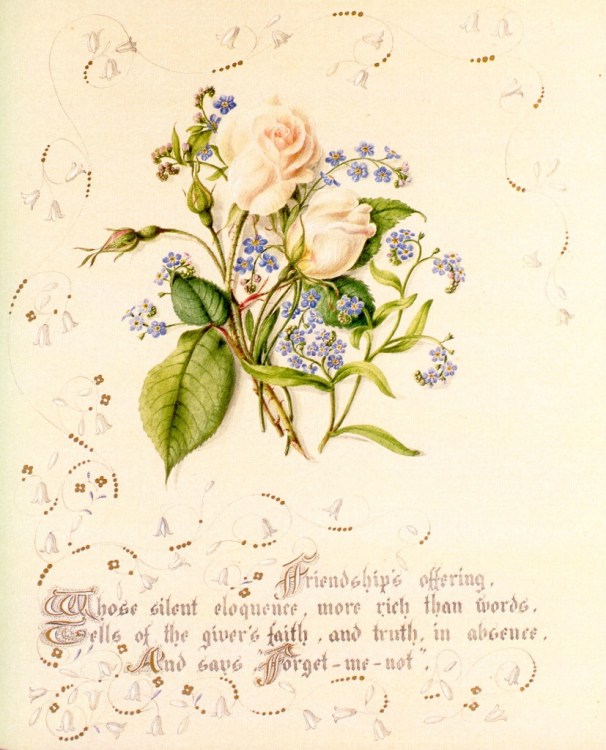 Friendship's offering,
Whose silent eloquence, more rich than words,
Tells of the giver's faith, and truth, in absence,
And says Forget-me-not".